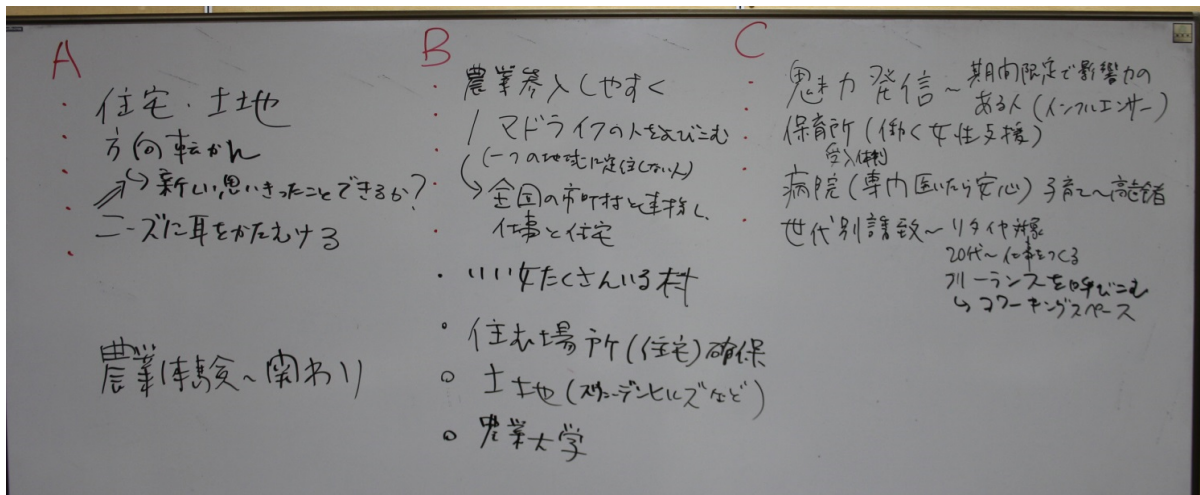 A
・住宅・土地
・方向転かん
・↳新しい思いきったことできるか?
・ニーズに耳をかたむける
・
農業体験～関わり
B
・農業参入しやすく
・ノマドライフの人をよびこむ
(一つの地域に定住しない人)
・↳全国の市町村と連携し、
・仕事と住宅
・いい女たくさんいる村
・住む場所(住宅)確保
○土地(スウェーデンヒルズなど)
○農業大学
C
・魅力発信～期間限定で影響力の
ある人(インフルエンサー)
・保育所(働く女性支援)
受入体制
・病院(専門医いたら安心)子育て～高齢者
・世代別誘致～リタイヤ対象
20代～仕事をつくる
フリーランスを呼びこむ
↳コワーキングスペース